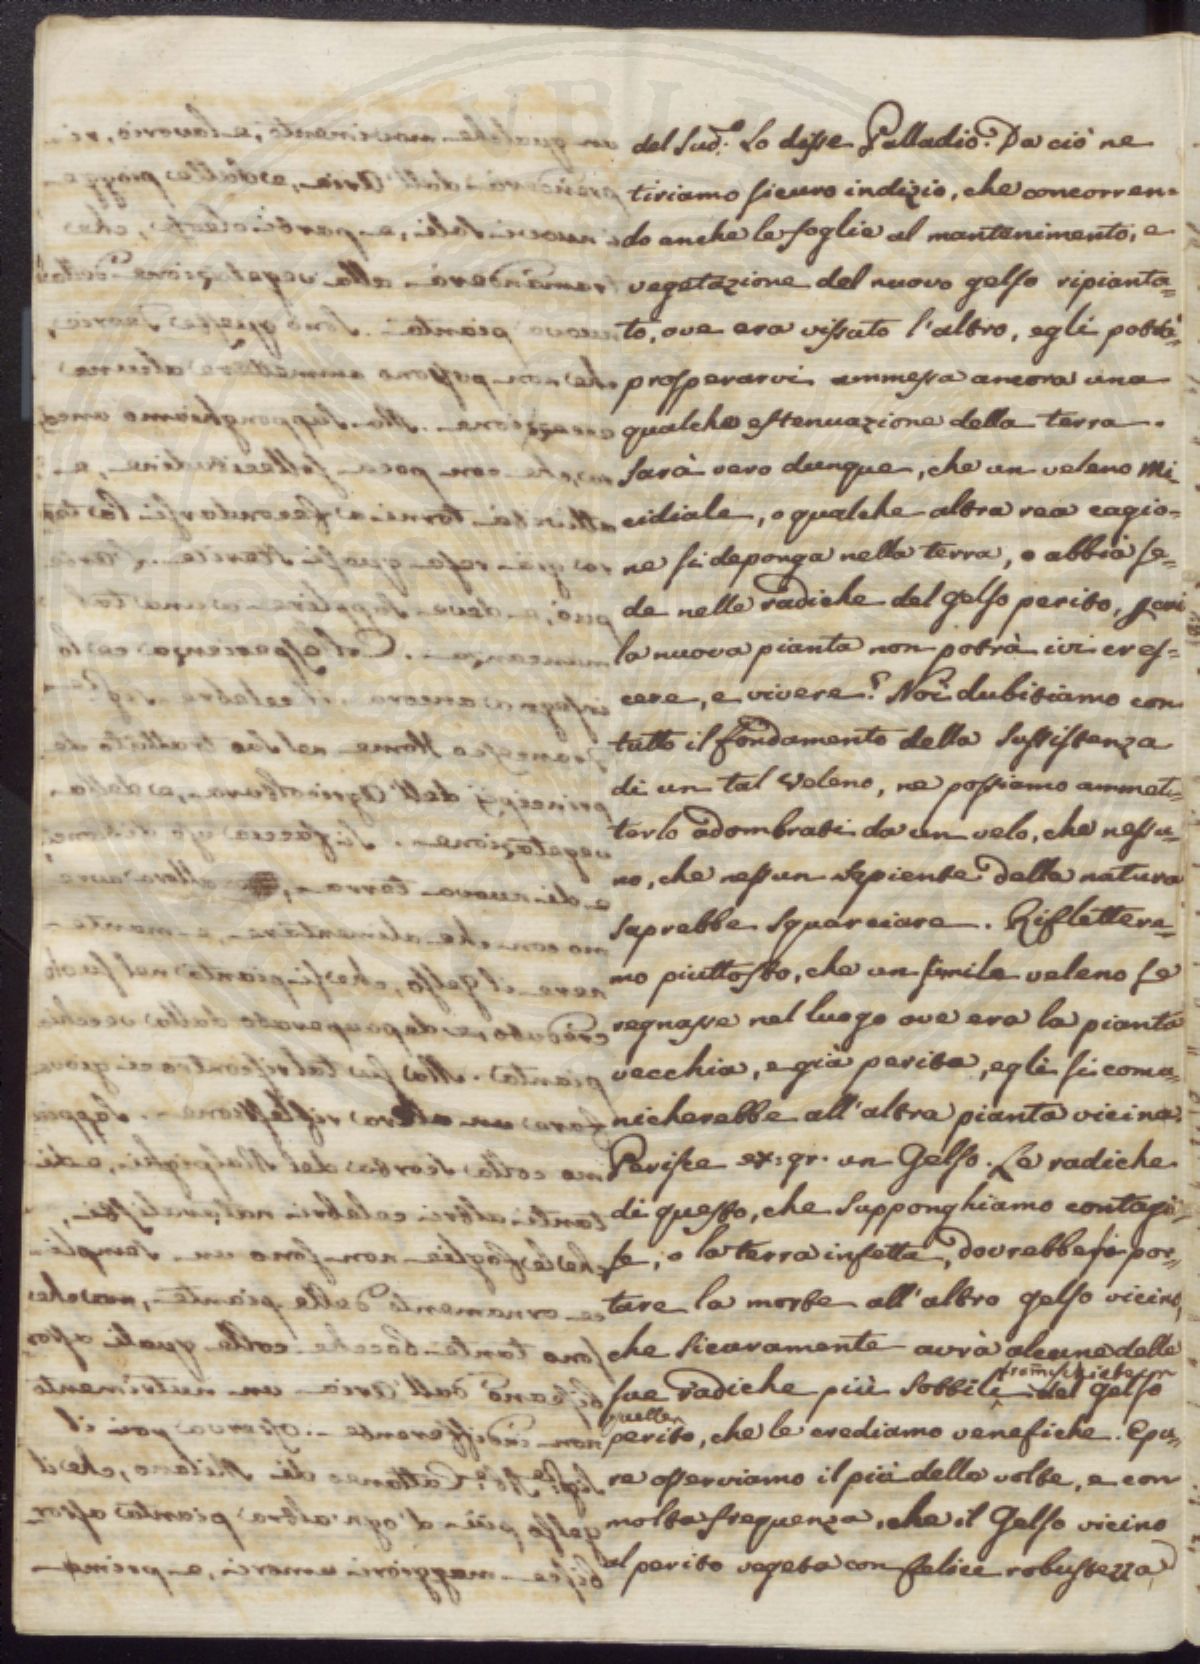 del Sud.º Lo disse Palladio. Da ciò ne
tiriamo sicuro indizio, che concorren=
do anche le foglie al mantenimento, e
vegetazione del nuovo gelso ripianta=
to, ove era vissuto l'altro, egli potrà
prosperarvi ammessa ancora una
qualche estenuazione della terra.
Sarà vero dunque, che un veleno mi
cidiale, o qualche altra rea cagio=
ne si deponga nella terra, o abbia se=
de nelle radiche del gelso perito,
la nuova pianta non potrà ivi cres=
cere, e vivere? Noi dubitiamo con
tutto il fondamento della sussistenza
di un tal veleno, ne possiamo ammet=
terlo adombrati da un velo, che nessu=
no, che nessun sapiente della natura
saprebbe squarciare. Riflettere=
mo piuttosto, che un simile veleno se
regnasse nel luogo ove era la pianta
vecchia, e già perita, egli si comu=
nicherebbe all'altra pianta vicina.
Perisce ex: gr: un Gelso. Le radiche
di questo, che supponghiamo contagio
se, o la terra infetta, dovrebbesi por=
tare la morte all'altro gelso vicino,
che sicuramente avrà alcune delle
sue radiche più sottili frammischiate con quelle del Gelso
perito, che le crediamo venefiche. Epu=
re osserviamo il più delle volte, e con
molta frequenza, che il Gelso vicino
al perito vegeta con felice robustezza